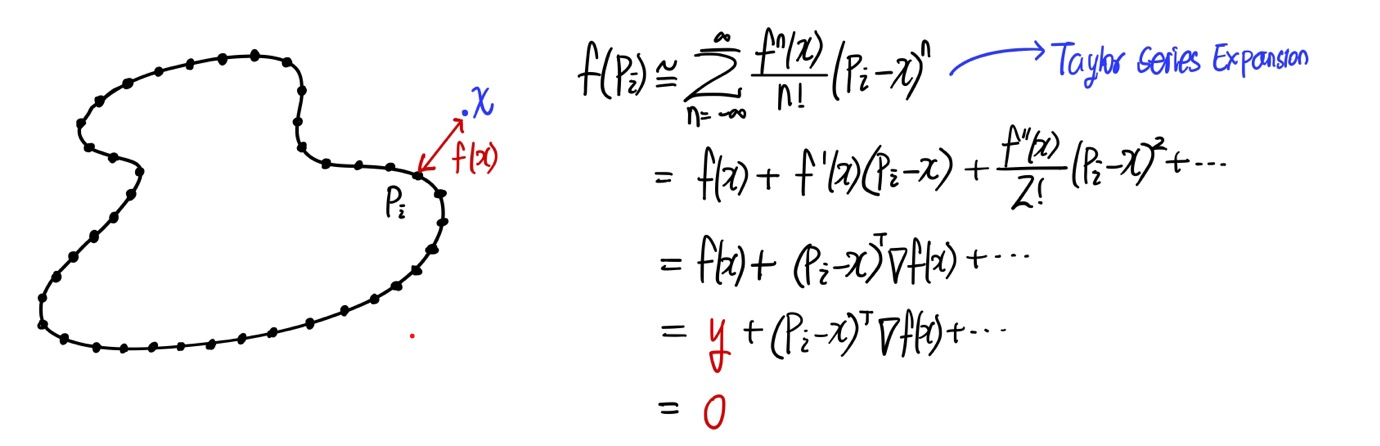 x
f(x)
P_i
f(P_i) ≅ ∑_{n=-∞}^{∞} \frac{f^n(x)}{n!} (P_i-x)^n → Taylor Series Expansion
= f(x) + f'(x)(P_i-x) + \frac{f''(x)}{2!} (P_i-x)^2 + ⋯
= f(x) + (P_i-x)^T ∇f(x) + ⋯
= y + (P_i-x)^T ∇f(x) + ⋯
= 0